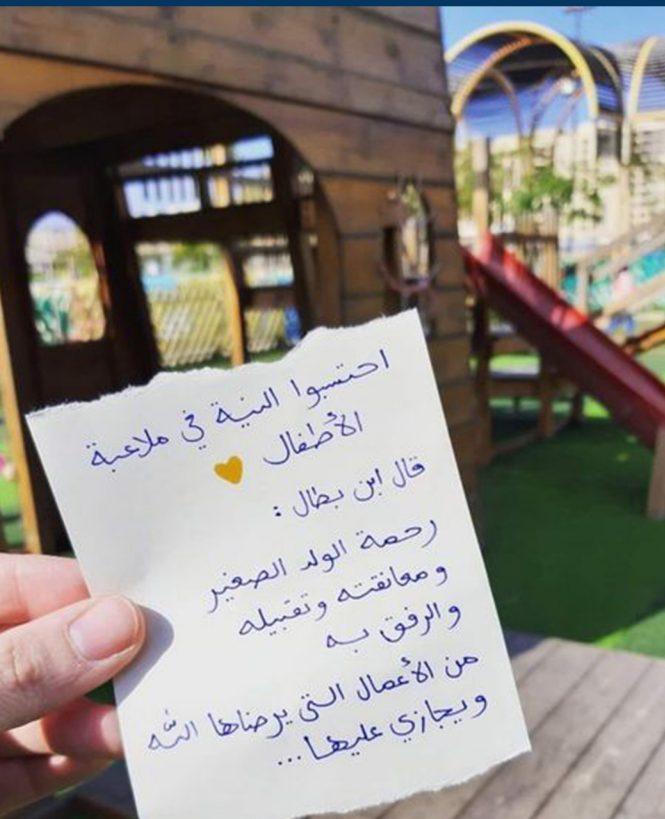 احتسبوا النية في ملاعبة
الأطفال
قال ابن بطال :
رحمة الولد الصغير
ومعانقته وتقبيله
والرفق به
من الأعمال التي يرضاها الله
ويجازي عليها...